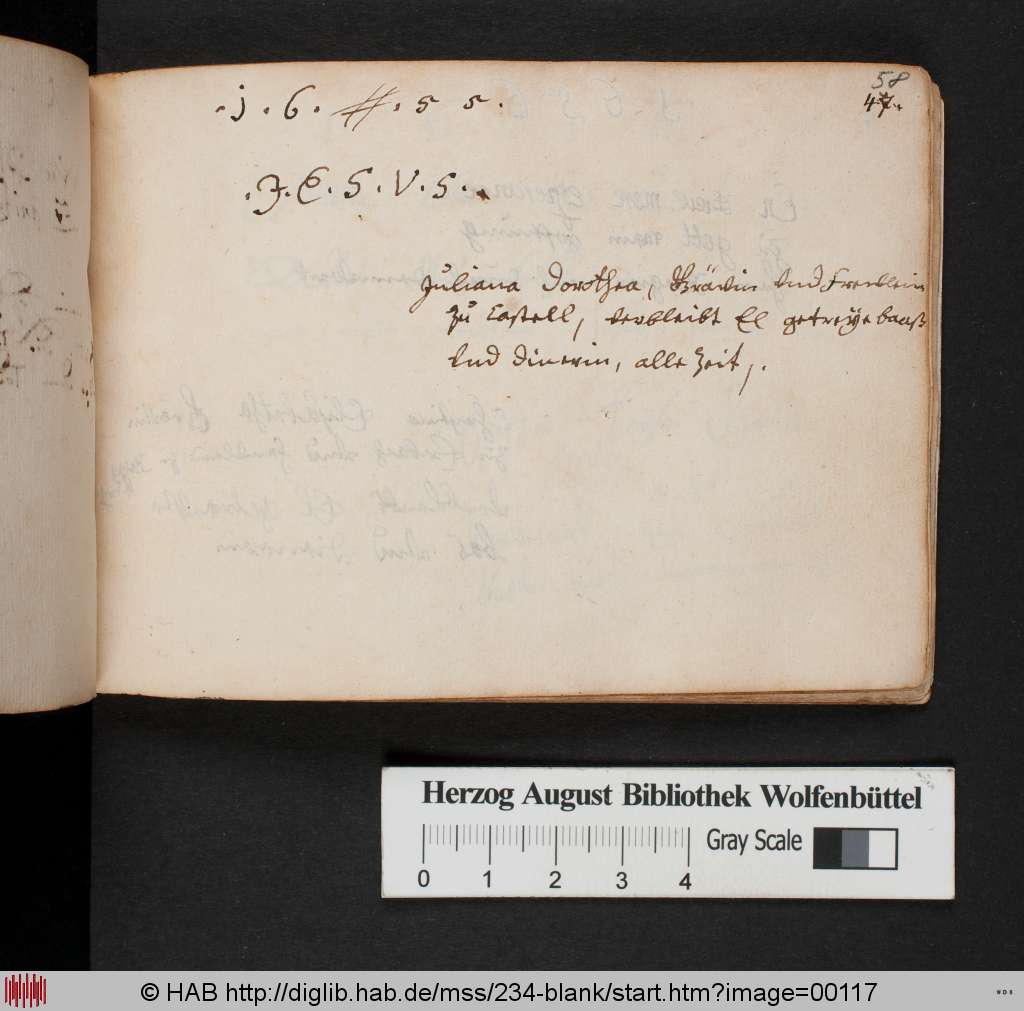 . j . 6 . # . 5 5 .
58
47.
. J . E . S . V . S .
Juliana Dorothea, Grävin und Freulein
zu Castell, verbleibt El getreÿe baaß
und dinerin, alle Zeit,.
Herzog August Bibliothek Wolfenbüttel
0 1 2 3 4
Gray Scale
© HAB http://diglib.hab.de/mss/234-blank/start.htm?image=00117